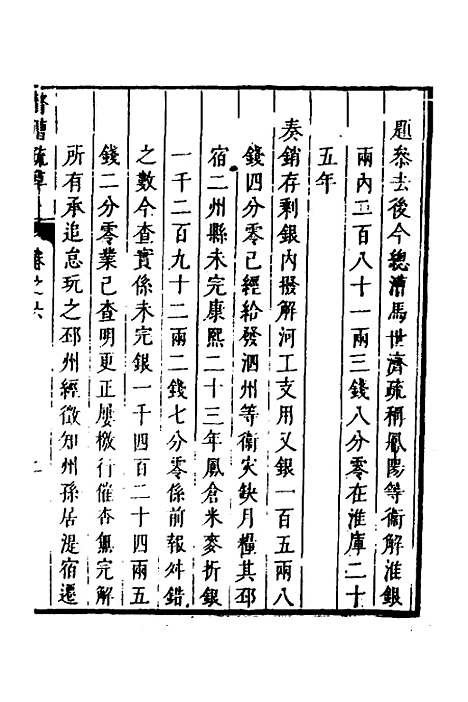 題叅去後今總漕馬世濟疏稱鳳陽等衞解淮銀
兩內二百八十一兩三錢八分零在淮庫二十
五年
奏銷存剩銀內撥解河工支用又銀一百五兩八
錢四分零已經給發泗州等衞灾缺月糧其邳
宿二州縣未完康熙二十三年鳳倉米麥折銀
一千二百九十二兩二錢七分零係前報舛錯
之數今查實係未完銀一千四百二十四兩五
錢二分零業已查明更正屢檄行催杳無完解
所有承追怠玩之邳州經徵知州孫居湜宿遷
督漕疏草
卷之六